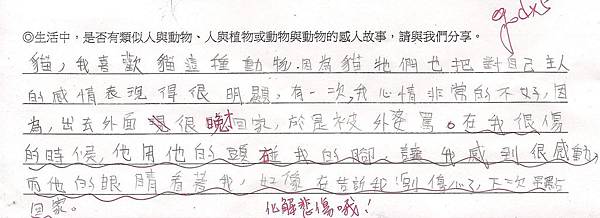 ◎生活中，是否有類似人與動物、人與植物或動物與動物的感人故事，請與我們分享。
godx5
貓，我喜歡貓這種動物．因為貓牠們也把對自己主人
的感情表現得很明顯，有一次，我心情非常的不好，因
為，出去外面很晚才回家，於是被外婆罵。在我很傷
的時候，他用他的頭碰我的腳，讓我感到很感動，
而他的眼睛看著我，好像在告訴我別傷心了，下次早點
回家。
化解悲傷哦！